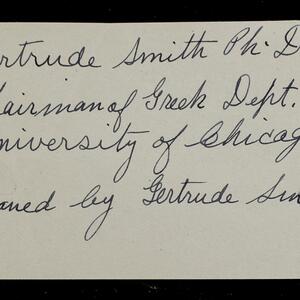 ertrude Smith Ph. D
hairman of Greek Dept.
niversity of Chicag
oned by Gertrude Sm